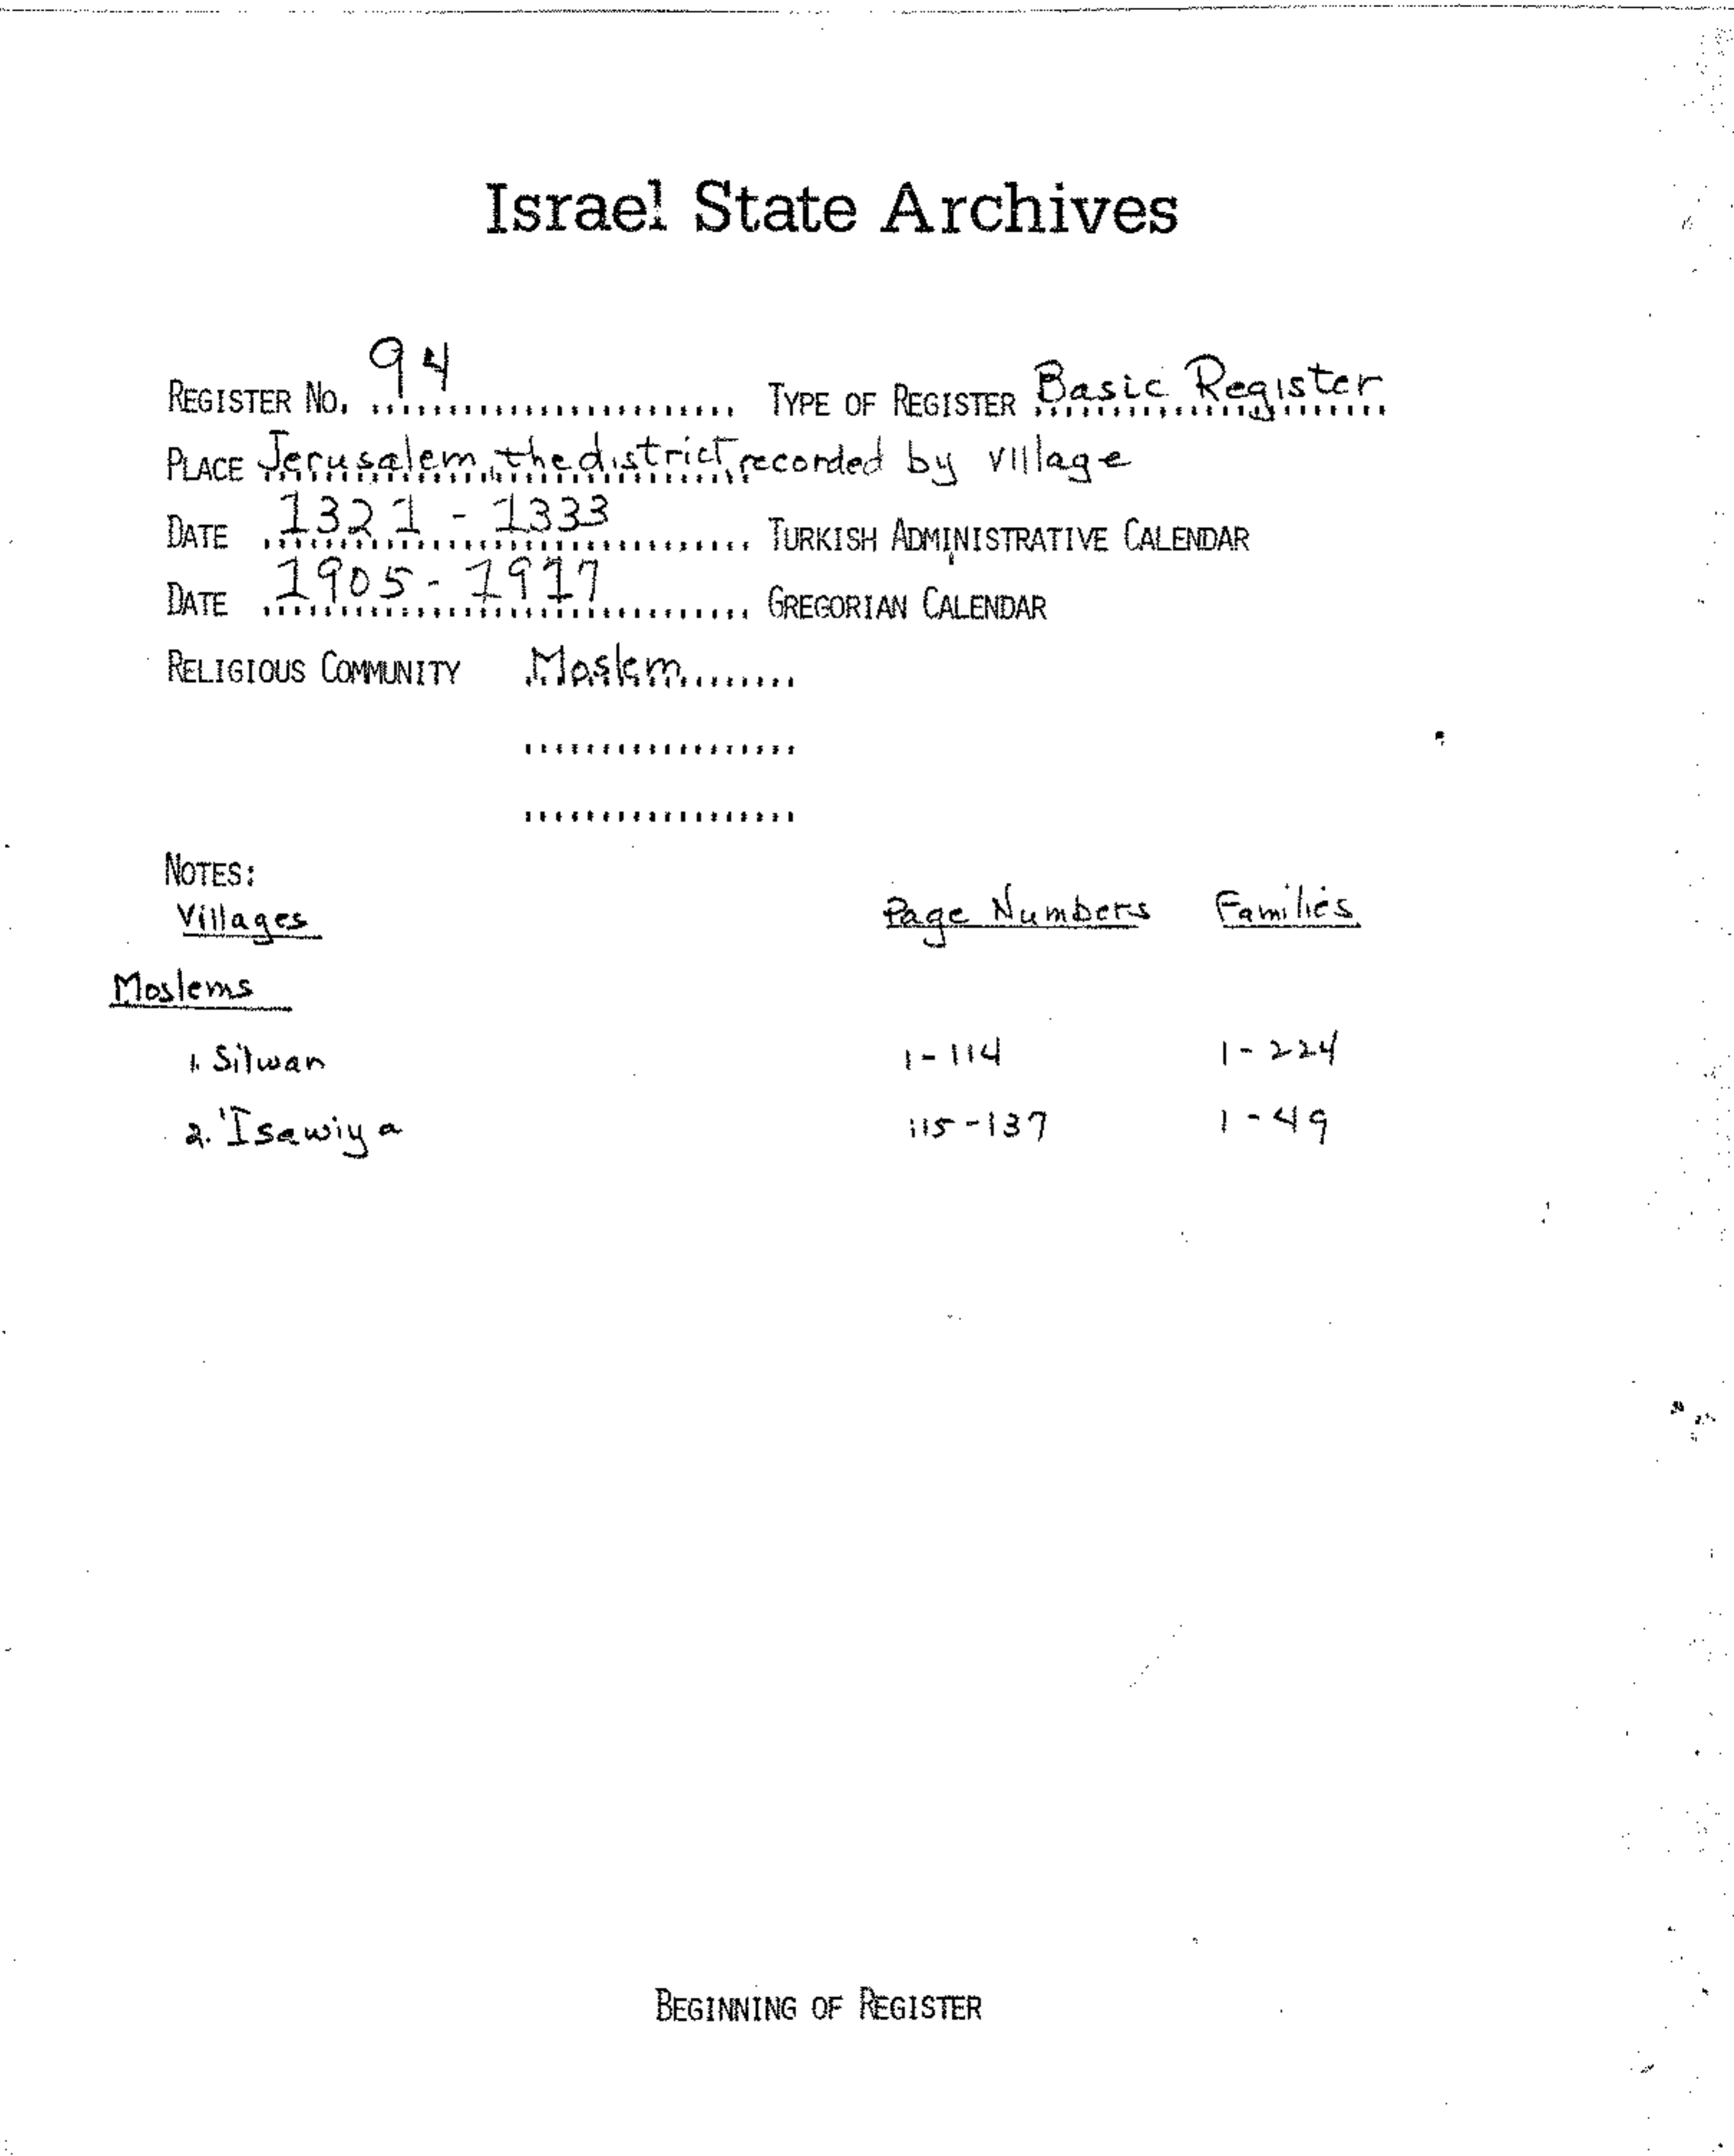 Israel State Archives
REGISTER NO. 94 TYPE OF REGISTER Basic Register
PLACE Jerusalem, the district recorded by village
DATE 1321 - 1333 TURKISH ADMINISTRATIVE CALENDAR
DATE 1905 - 1917 GREGORIAN CALENDAR
RELIGIOUS COMMUNITY Moslem
NOTES:
Villages Page Numbers Families
Moslems
1. Silwan 1 - 114 1 - 224
2. 'Isawiya 115 - 137 1 - 49
BEGINNING OF REGISTER